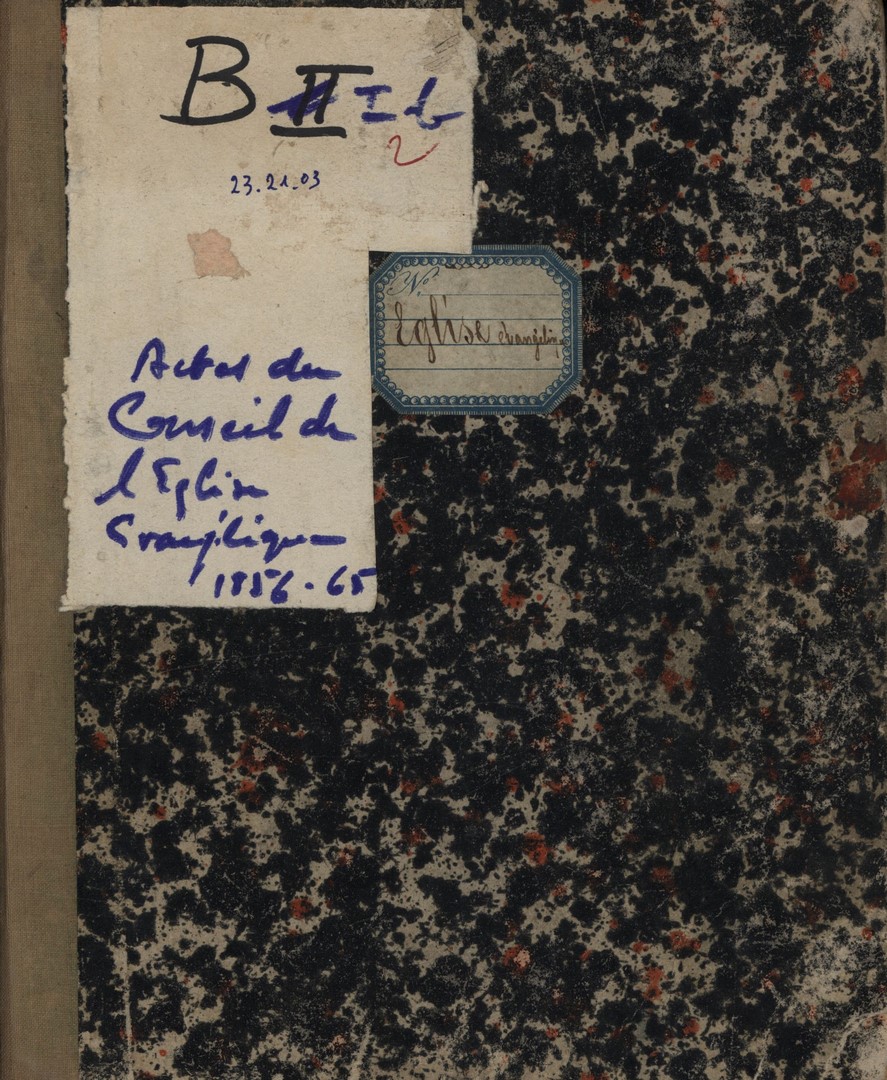 B II I b
2
23.21.03
No
Eglise évangéliq
Actes du
Conseil de
l'Eglise
Evangélique
1856-65